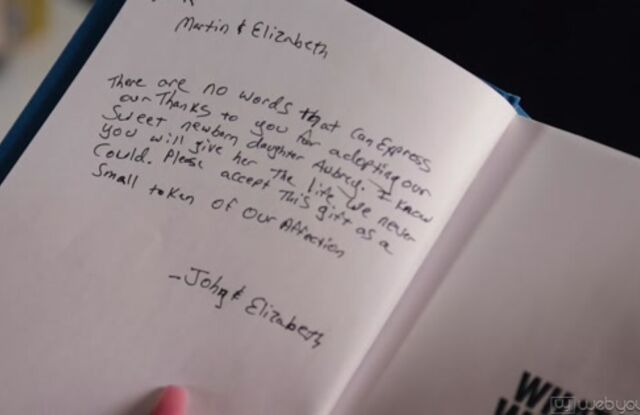 Martin & Elizabeth
There are no words that can Express
our Thanks to you for adopting our
Sweet newborn daughter Aubrey. I know
you will give her The life we never
Could. Please accept This gift as a
Small token of our Affection
- John & Elizabeth